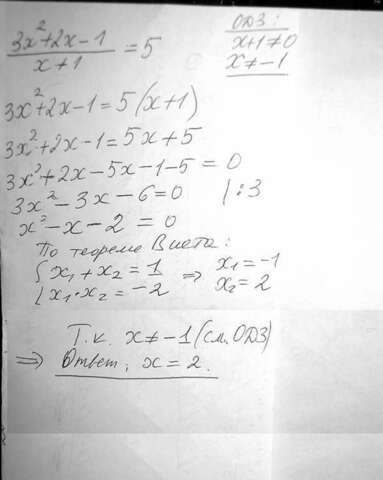 (3x²+2x-1)/(x+1) = 5
ОДЗ:
x+1≠0
x≠-1
3x²+2x-1=5(x+1)
3x²+2x-1=5x+5
3x²+2x-5x-1-5=0
3x²-3x-6=0 |:3
x²-x-2=0
По теореме Виета:
{x₁+x₂=1 ⇒ x₁=-1
{x₁·x₂=-2 x₂=2
Т.к. x≠-1 (см. ОДЗ)
⇒ Ответ: x=2.